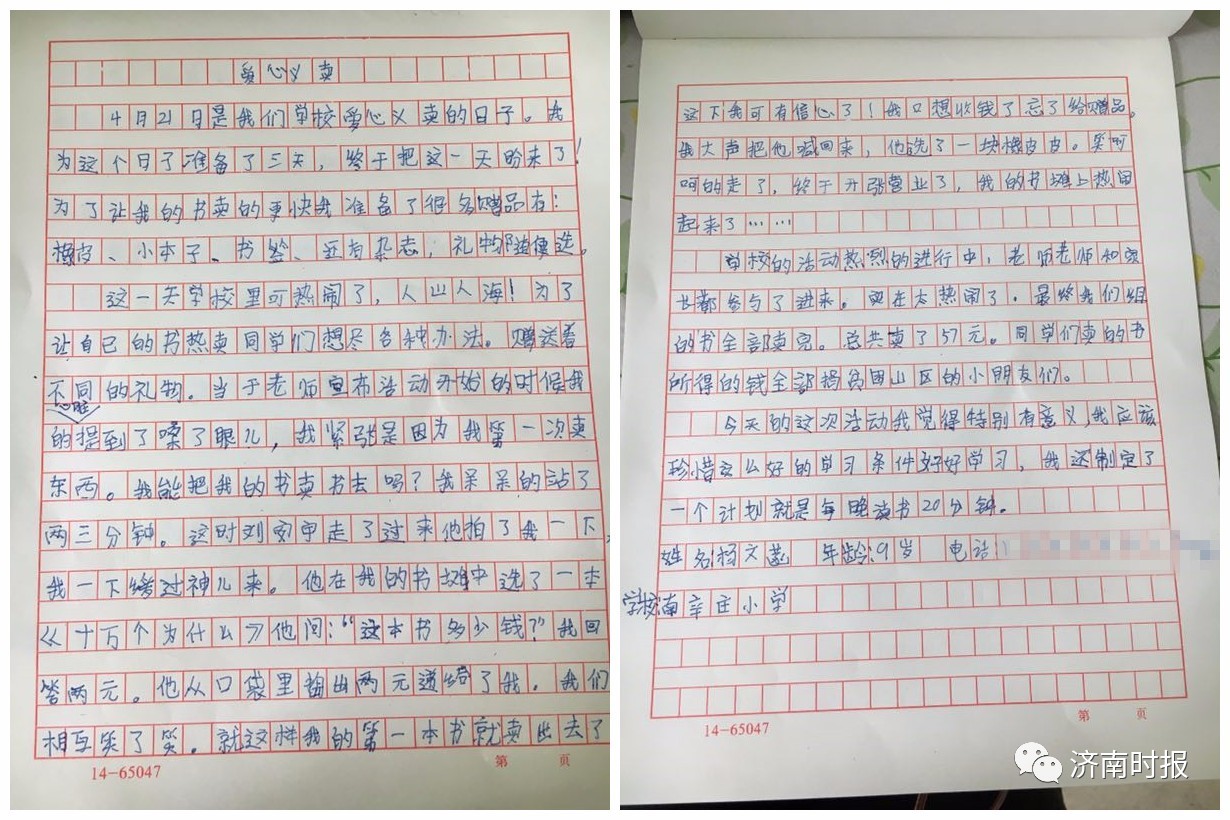 爱心义卖
4月21日是我们学校爱心义卖的日子。我
为这个日子准备了三天，终于把这一天盼来了！
为了让我的书卖的更快我准备了很多赠品有：
橡皮、小本子、书签、还有杂志，礼物随便选。
这一天学校里可热闹了，人山人海！为了
让自己的书热卖同学们想尽各种办法。赠送着
不同的礼物。当于老师宣布活动开始的时候我
心脏
的提到了嗓子眼儿，我紧张是因为我第一次卖
东西。我能把我的书卖出去吗？我呆呆的站了
两三分钟。这时刘家申走了过来他拍了我一下，
我一下缓过神儿来。他在我的书摊中选了一本
《十万个为什么》他问：“这本书多少钱？”我回
答两元。他从口袋里掏出两元递给了我。我们
相互笑了笑。就这样我的第一本书就卖出去了
14-65047
第 页
这下我可有信心了！我只想收钱了忘了给赠品。
我大声把他喊回来，他选了一块橡皮皮。笑呵
呵的走了，终于开张营业了，我的书摊上热闹
起来了……
学校的活动热烈的进行中，老师老师和家
长都参与了进来。现在太热闹了。最终我们组
的书全部卖完。总共卖了57元。同学们卖的书
所得的钱全部捐贫困山区的小朋友们。
今天的这次活动我觉得特别有意义，我应该
珍惜这么好的学习条件好好学习，我还制定了
一个计划就是每晚读书20分钟。
姓名：杨文 年龄：9岁 电话：
学校：南辛庄小学
14-65047
第 页
济南时报